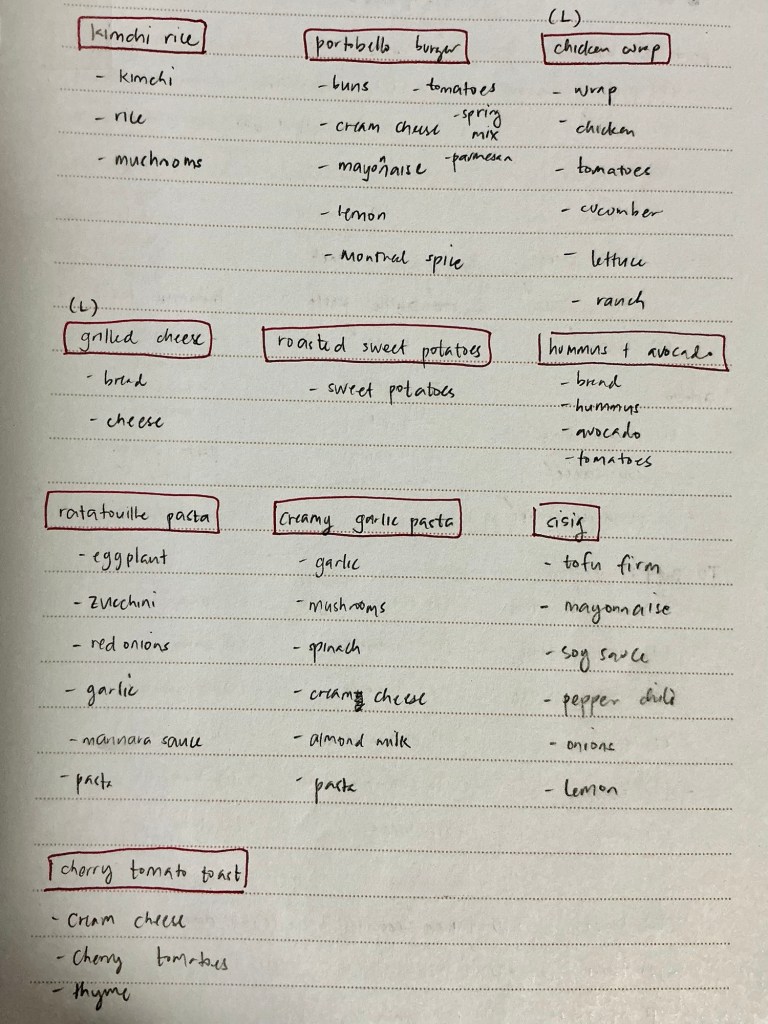 kimchi rice
- kimchi
- rice
- muchrooms
portobello burger
- buns
- cream cheese
- mayonaise
- lemon
- Montreal spice
- tomatoes
- spring
mix
- parmesan
(L)
chicken wrap
- wrap
- chicken
- tomatoes
- cucumber
- lettuce
- ranch
(L)
grilled cheese
- bread
- cheese
roasted sweet potatoes
- sweet potatoes
hummus + avocado
- bread
- hummus
- avocado
- tomatoes
ratatouille pasta
- eggplant
- zucchini
- red onions
- garlic
- marinara sauce
- pasta
creamy garlic pasta
- garlic
- mushrooms
- spinach
- cream cheese
- almond milk
- pasta
cisig
- tofu firm
- mayonnaise
- soy sauce
- pepper chili
- onions
- lemon
cherry tomato toast
- cream cheese
- cherry tomatoes
- thyme